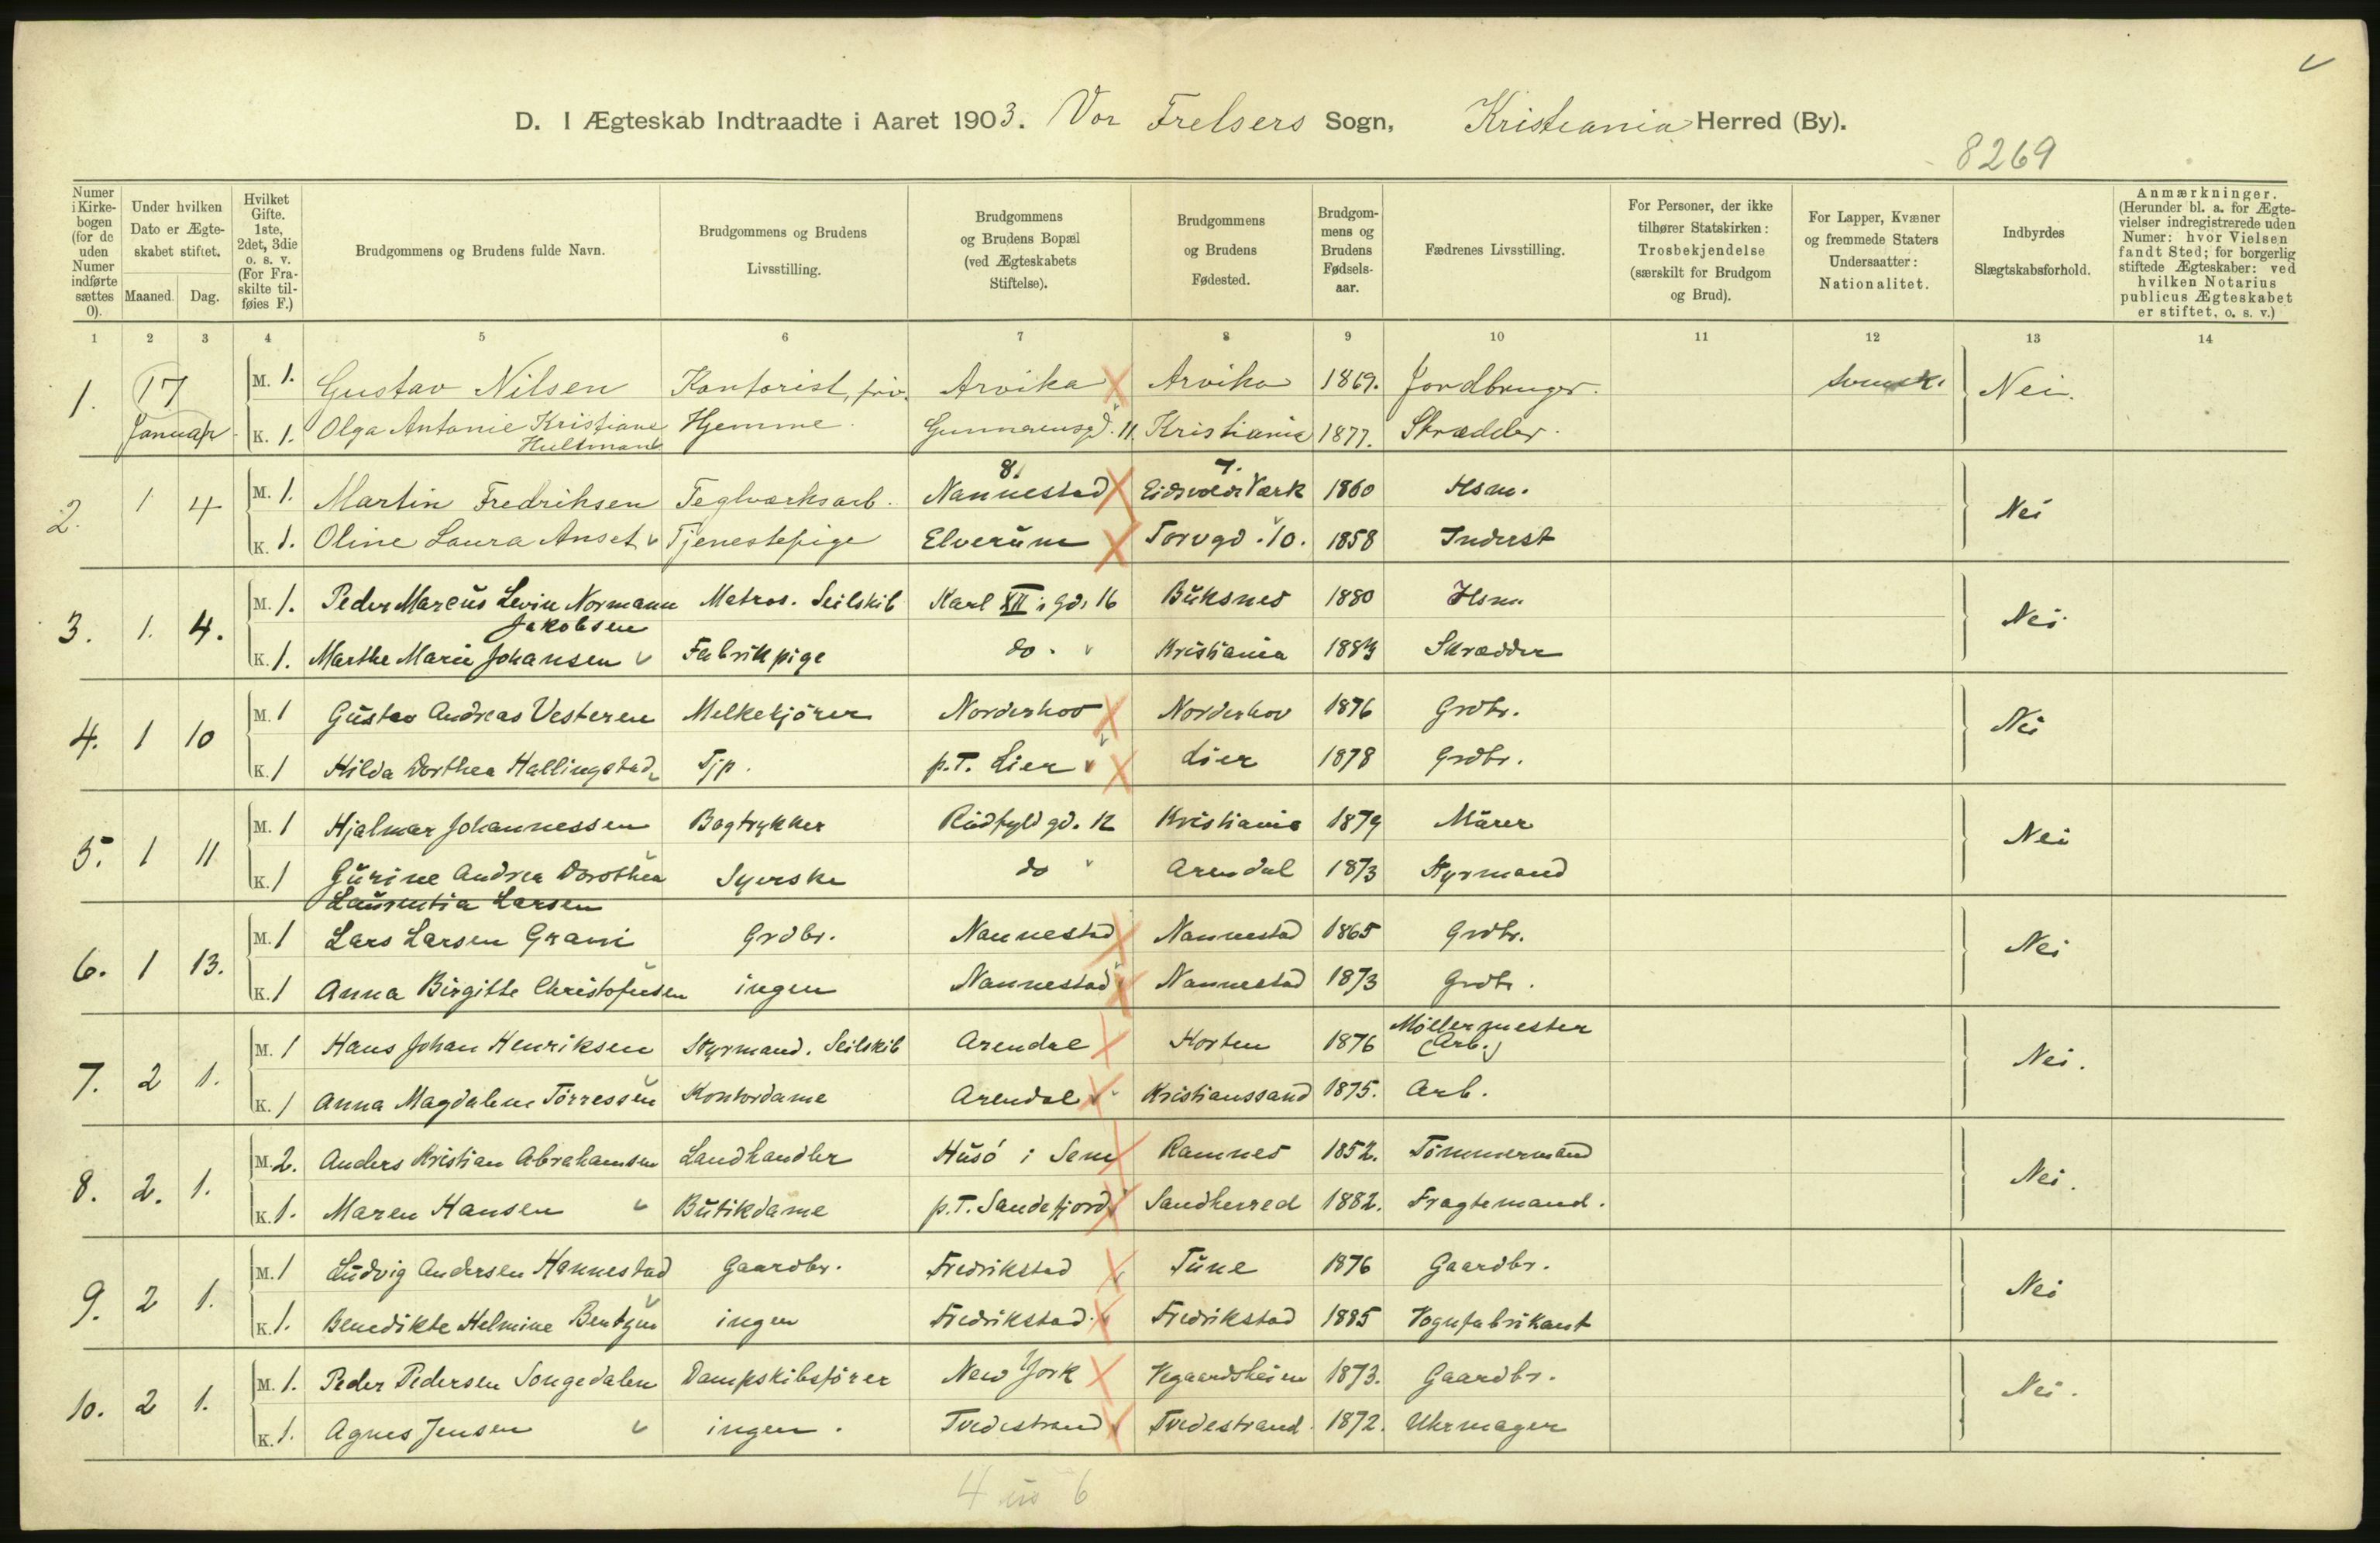 D. I Ægteskab Indtraadte i Aaret 1903. Vor Frelsers Sogn, Kristiania Herred (By).
8269
Numer i Kirkebogen (for de uden Numer indførte sættes 0).
Under hvilken Dato er Ægteskabet stiftet.
Maaned. Dag.
Hvilket Gifte. 1ste, 2det, 3die o. s. v. (For Fraskilte tilføies F.)
Brudgommens og Brudens fulde Navn.
Brudgommens og Brudens Livsstilling.
Brudgommens og Brudens Bopæl (ved Ægteskabets Stiftelse).
Brudgommens og Brudens Fødested.
Brudgommens og Brudens Fødselsaar.
Fædrenes Livsstilling.
For Personer, der ikke tilhører Statskirken: Trosbekjendelse (særskilt for Brudgom og Brud).
For Lapper, Kvæner og fremmede Staters Undersaatter: Nationalitet.
Indbyrdes Slægtskabsforhold.
Anmærkninger. (Herunder bl. a. for Ægtevielser indregistrerede uden Numer: hvor Vielsen fandt Sted; for borgerlig stiftede Ægteskaber: ved hvilken Notarius publicus Ægteskabet er stiftet, o. s. v.)
1 2 3 4 5 6 7 8 9 10 11 12 13 14
1. 17 Januar M. 1. Gustav Nilsen Kontorist, priv. Arvika Arvika 1869. Jordbruger. svensk. Nei.
K. 1. Olga Antonie Kristiane Hultmann Hjemme. Gunnerusgd. 11. Kristiania 1877. Skrædder.
2. 1 4 M. 1. Martin Fredriksen Teglværksarb. 8. Nannestad 7. Eidsvolds Værk 1860 Hsm. Nei
K. 1. Oline Laura Anset Tjenestepige Elverum Torvgd. 10. 1858 Inderst
3. 1. 4. M. 1. Peder Marcus Levin Normann Jakobsen Matros. Seilskib Karl XII's Gd. 16 Buksnes 1880 Hsm. Nei
K. 1. Marthe Marie Johansen Fabrikpige do. Kristiania 1883 Skrædder
4. 1 10 M. 1 Gustav Andreas Vesteren Melkekjører Norderhov Norderhov 1876 Grdbr. Nei
K. 1 Hilda Dorthea Hallingstad Tjp. p.T. Lier Lier 1878 Grdbr.
5. 1 11 M. 1 Hjalmar Johannessen Bogtrykker Rudfyldgd. 12 Kristiania 1879 Murer Nei
K. 1 Gurine Andrea Dorothea Laurentia Larsen Syerske do Arendal 1873 Styrmand
6. 1 13. M. 1 Lars Larsen Grani Grdbr. Nannestad Nannestad 1865 Grdbr. Nei
K. 1 Anna Birgitte Christofersen ingen Nannestad Nannestad 1873 Grdbr.
7. 2 1. M. 1 Hans Johan Henriksen Styrmand. Seilskib Arendal Horten 1876 Møllermester (Arb.) Nei.
K. 1 Anna Magdalene Tørressen Kontordame Arendal Kristianssand 1875. Arb.
8. 2. 1. M. 2. Anders Kristian Abrahamsen Landhandler Husø i Sem Ramnes 1852. Tømmermand Nei.
K. 1. Maren Hansen Butikdame p.T. Sandefjord Sandherred 1882. Fragtemand.
9. 2 1. M. 1 Ludvig Andersen Hannestad Gaardbr. Fredrikstad Tune 1876 Gaardbr. Nei
K. 1. Benedikte Helmine Bentzen ingen Fredrikstad. Fredrikstad 1885 Vognfabrikant
10. 2 1. M. 1. Peder Pedersen Songedalen Dampskibsfører New York Vegaardsheien 1873. Gaardbr. Nei.
K. 1. Agnes Jensen ingen. Tvedestrand Tvedestrand. 1872. Uhrmager